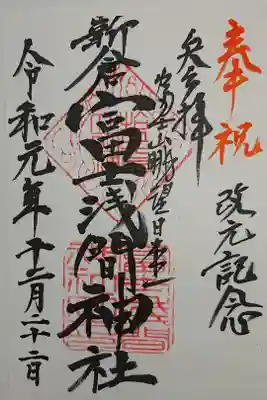 奉祝
改元記念
奉拝
富士山眺望日本一
新倉富士浅間神社
令和元年十二月二十二日